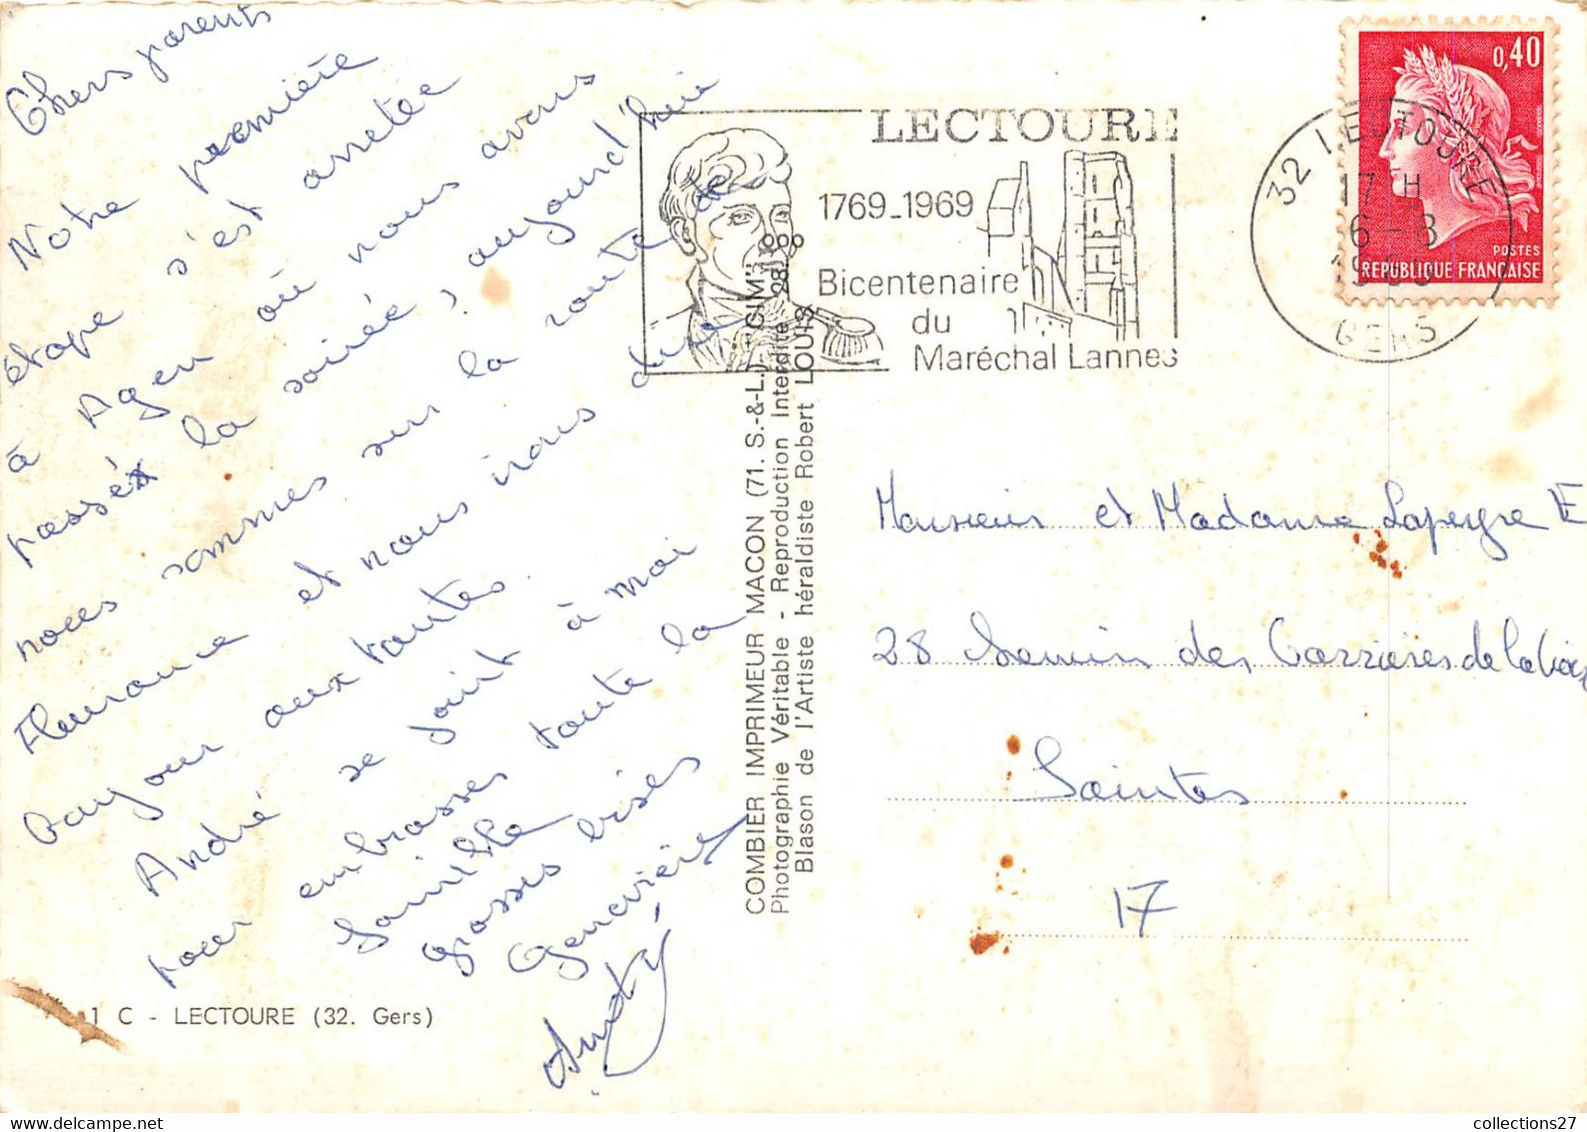 Chers parents
Notre première
étape s'est arretée
à Agen où nous avons
passéx la soirée, aujourd'hui
nous sommes sur la route de
Fleurance et nous irons dire
bonjour aux tantes.
André se joint à moi
pour embrasser toute la
famille
grosses bises
Geneviève
André
1 C - LECTOURE (32. Gers)
COMBIER IMPRIMEUR MACON (71. S.-&-L.) "CIM"
Photographie Véritable - Reproduction Interdite 28
Blason de l'Artiste héraldiste Robert LOUIS
LECTOURE
1769_1969
Bicentenaire
du
Maréchal Lannes
32 LECTOURE
17 H
6 - 8
GERS
0,40
POSTES
REPUBLIQUE FRANCAISE
Monsieur et Madame Lapeyre E
28 Chemin des Carrières de la Croix
Saintes
17
collections27